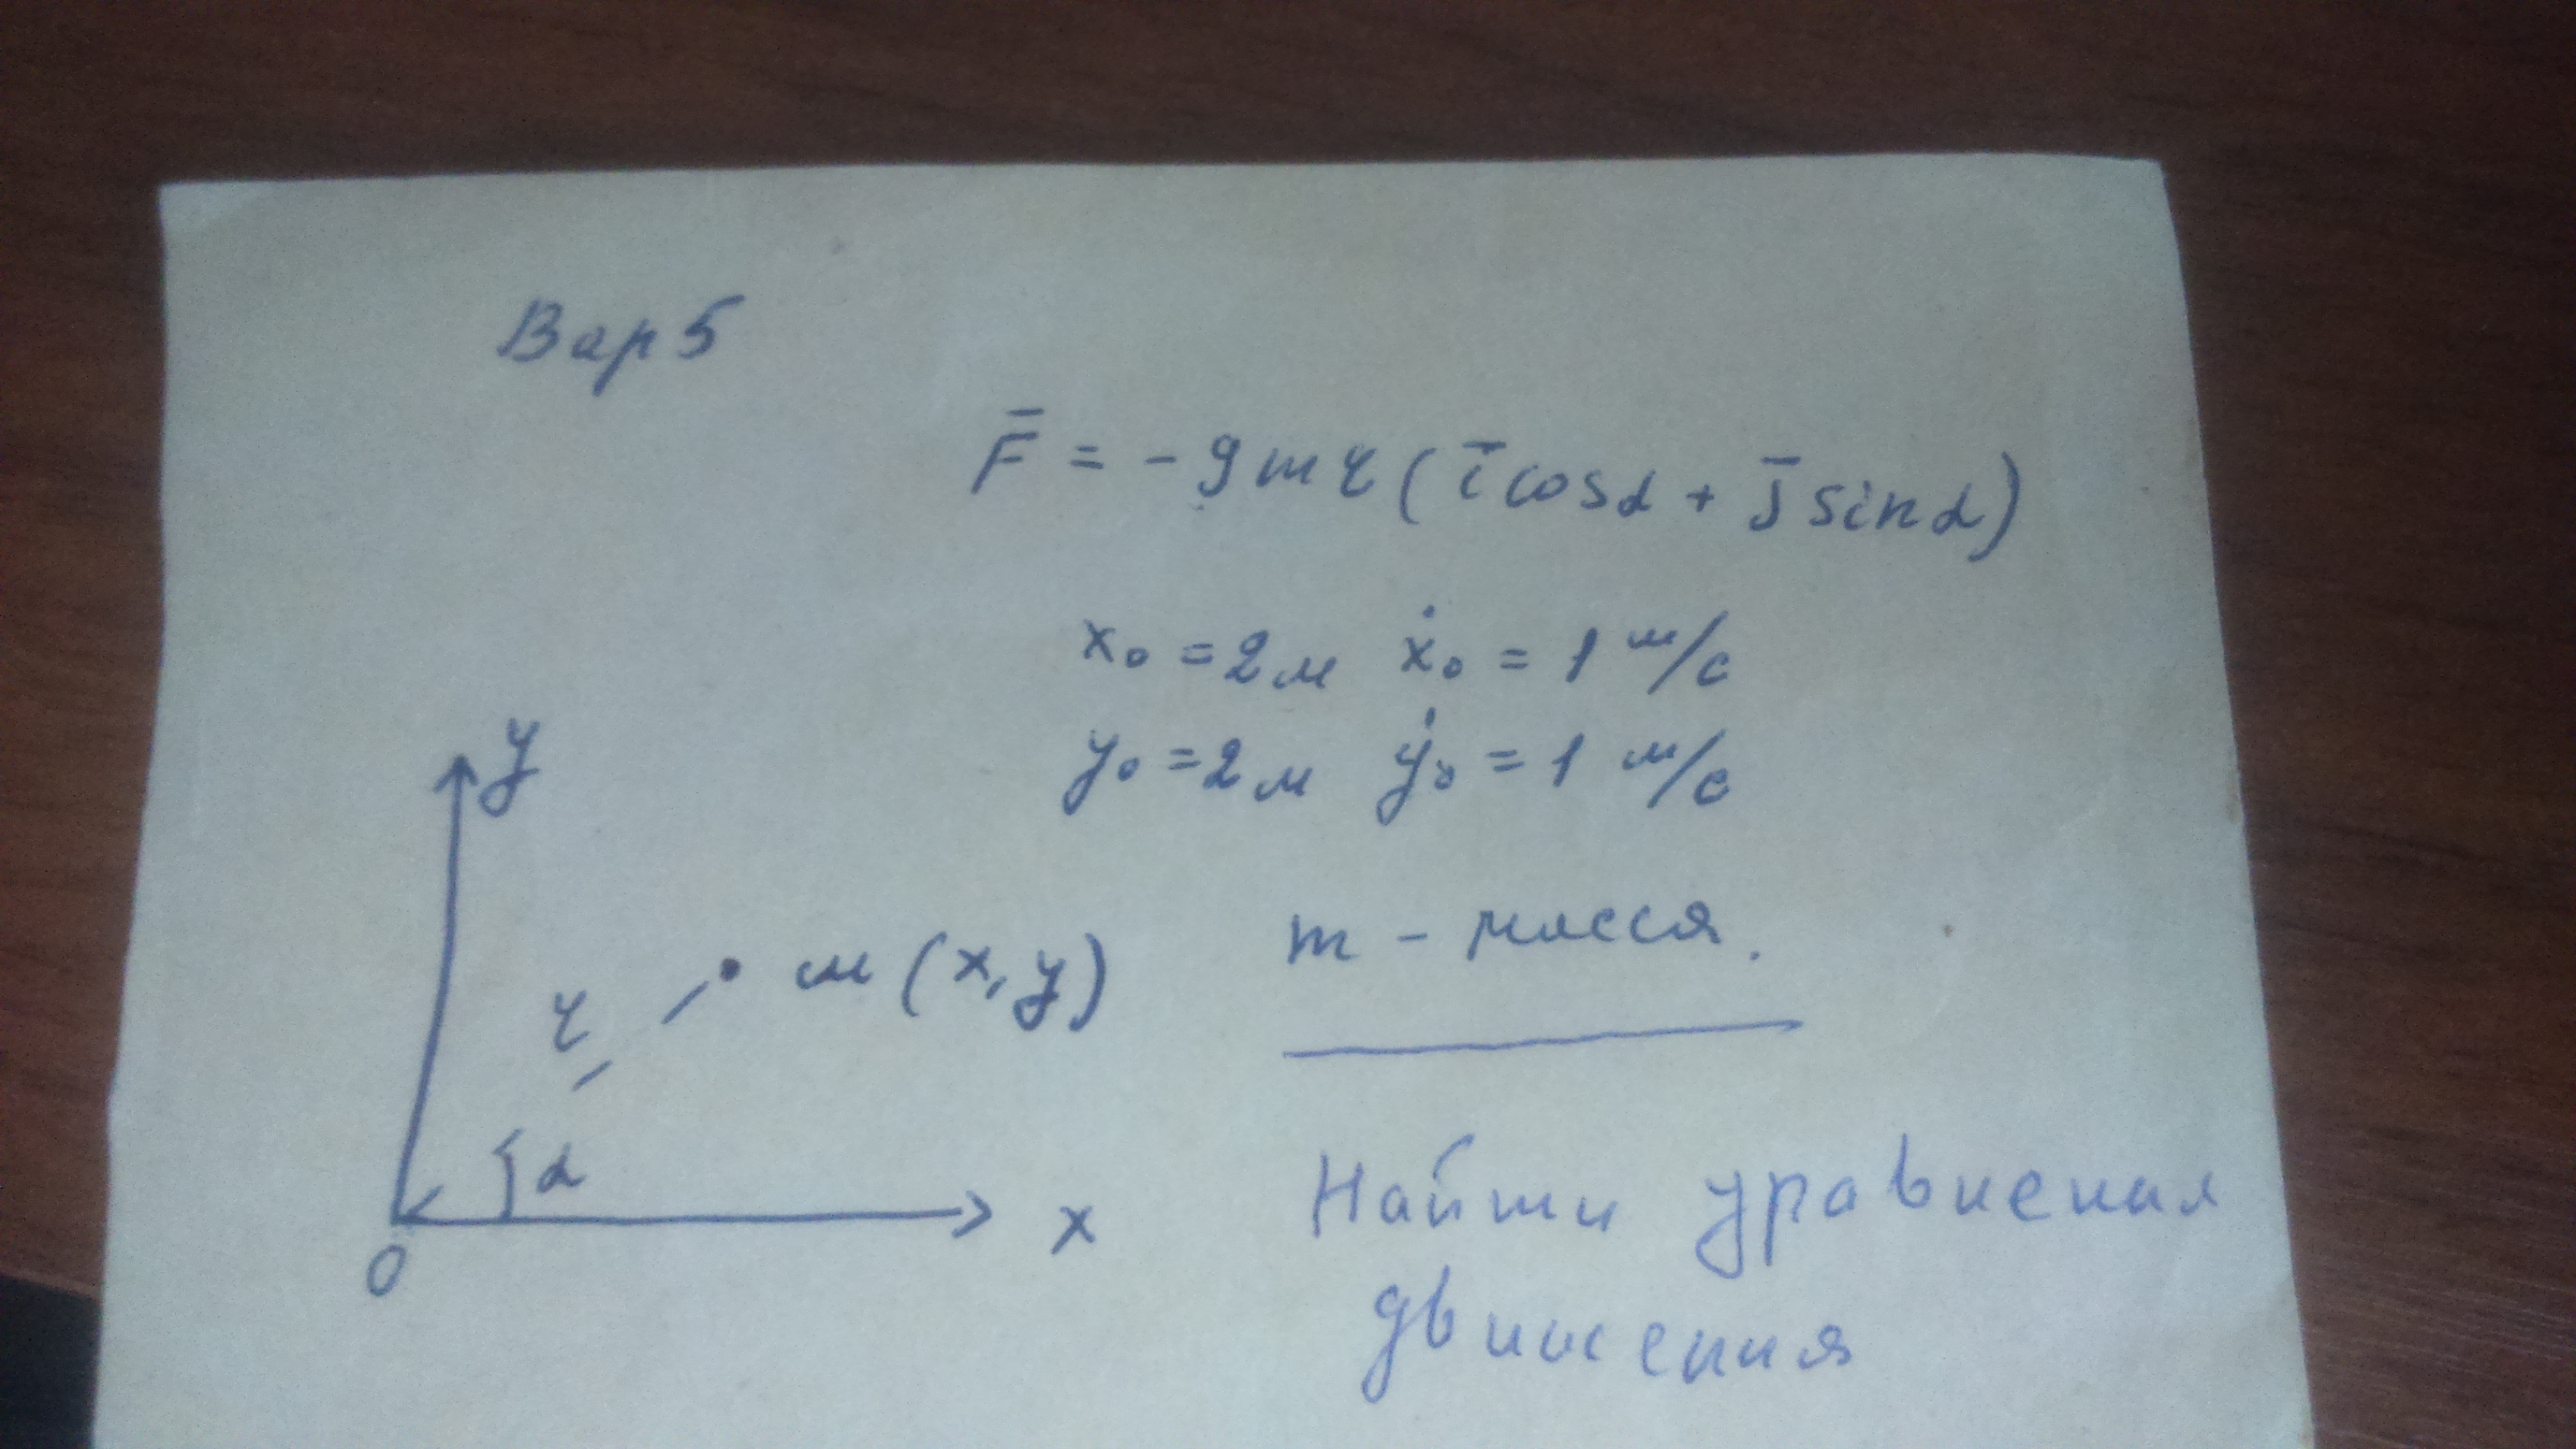 Вар 5
F̄ = - 9 m r ( ī cos α + j̄ sin α )
x₀ = 2 м ẋ₀ = 1 м/с
y₀ = 2 м ẏ₀ = 1 м/с
m - масса.
y
r
м (x, y)
α
x
0
Найти уравнения
движения